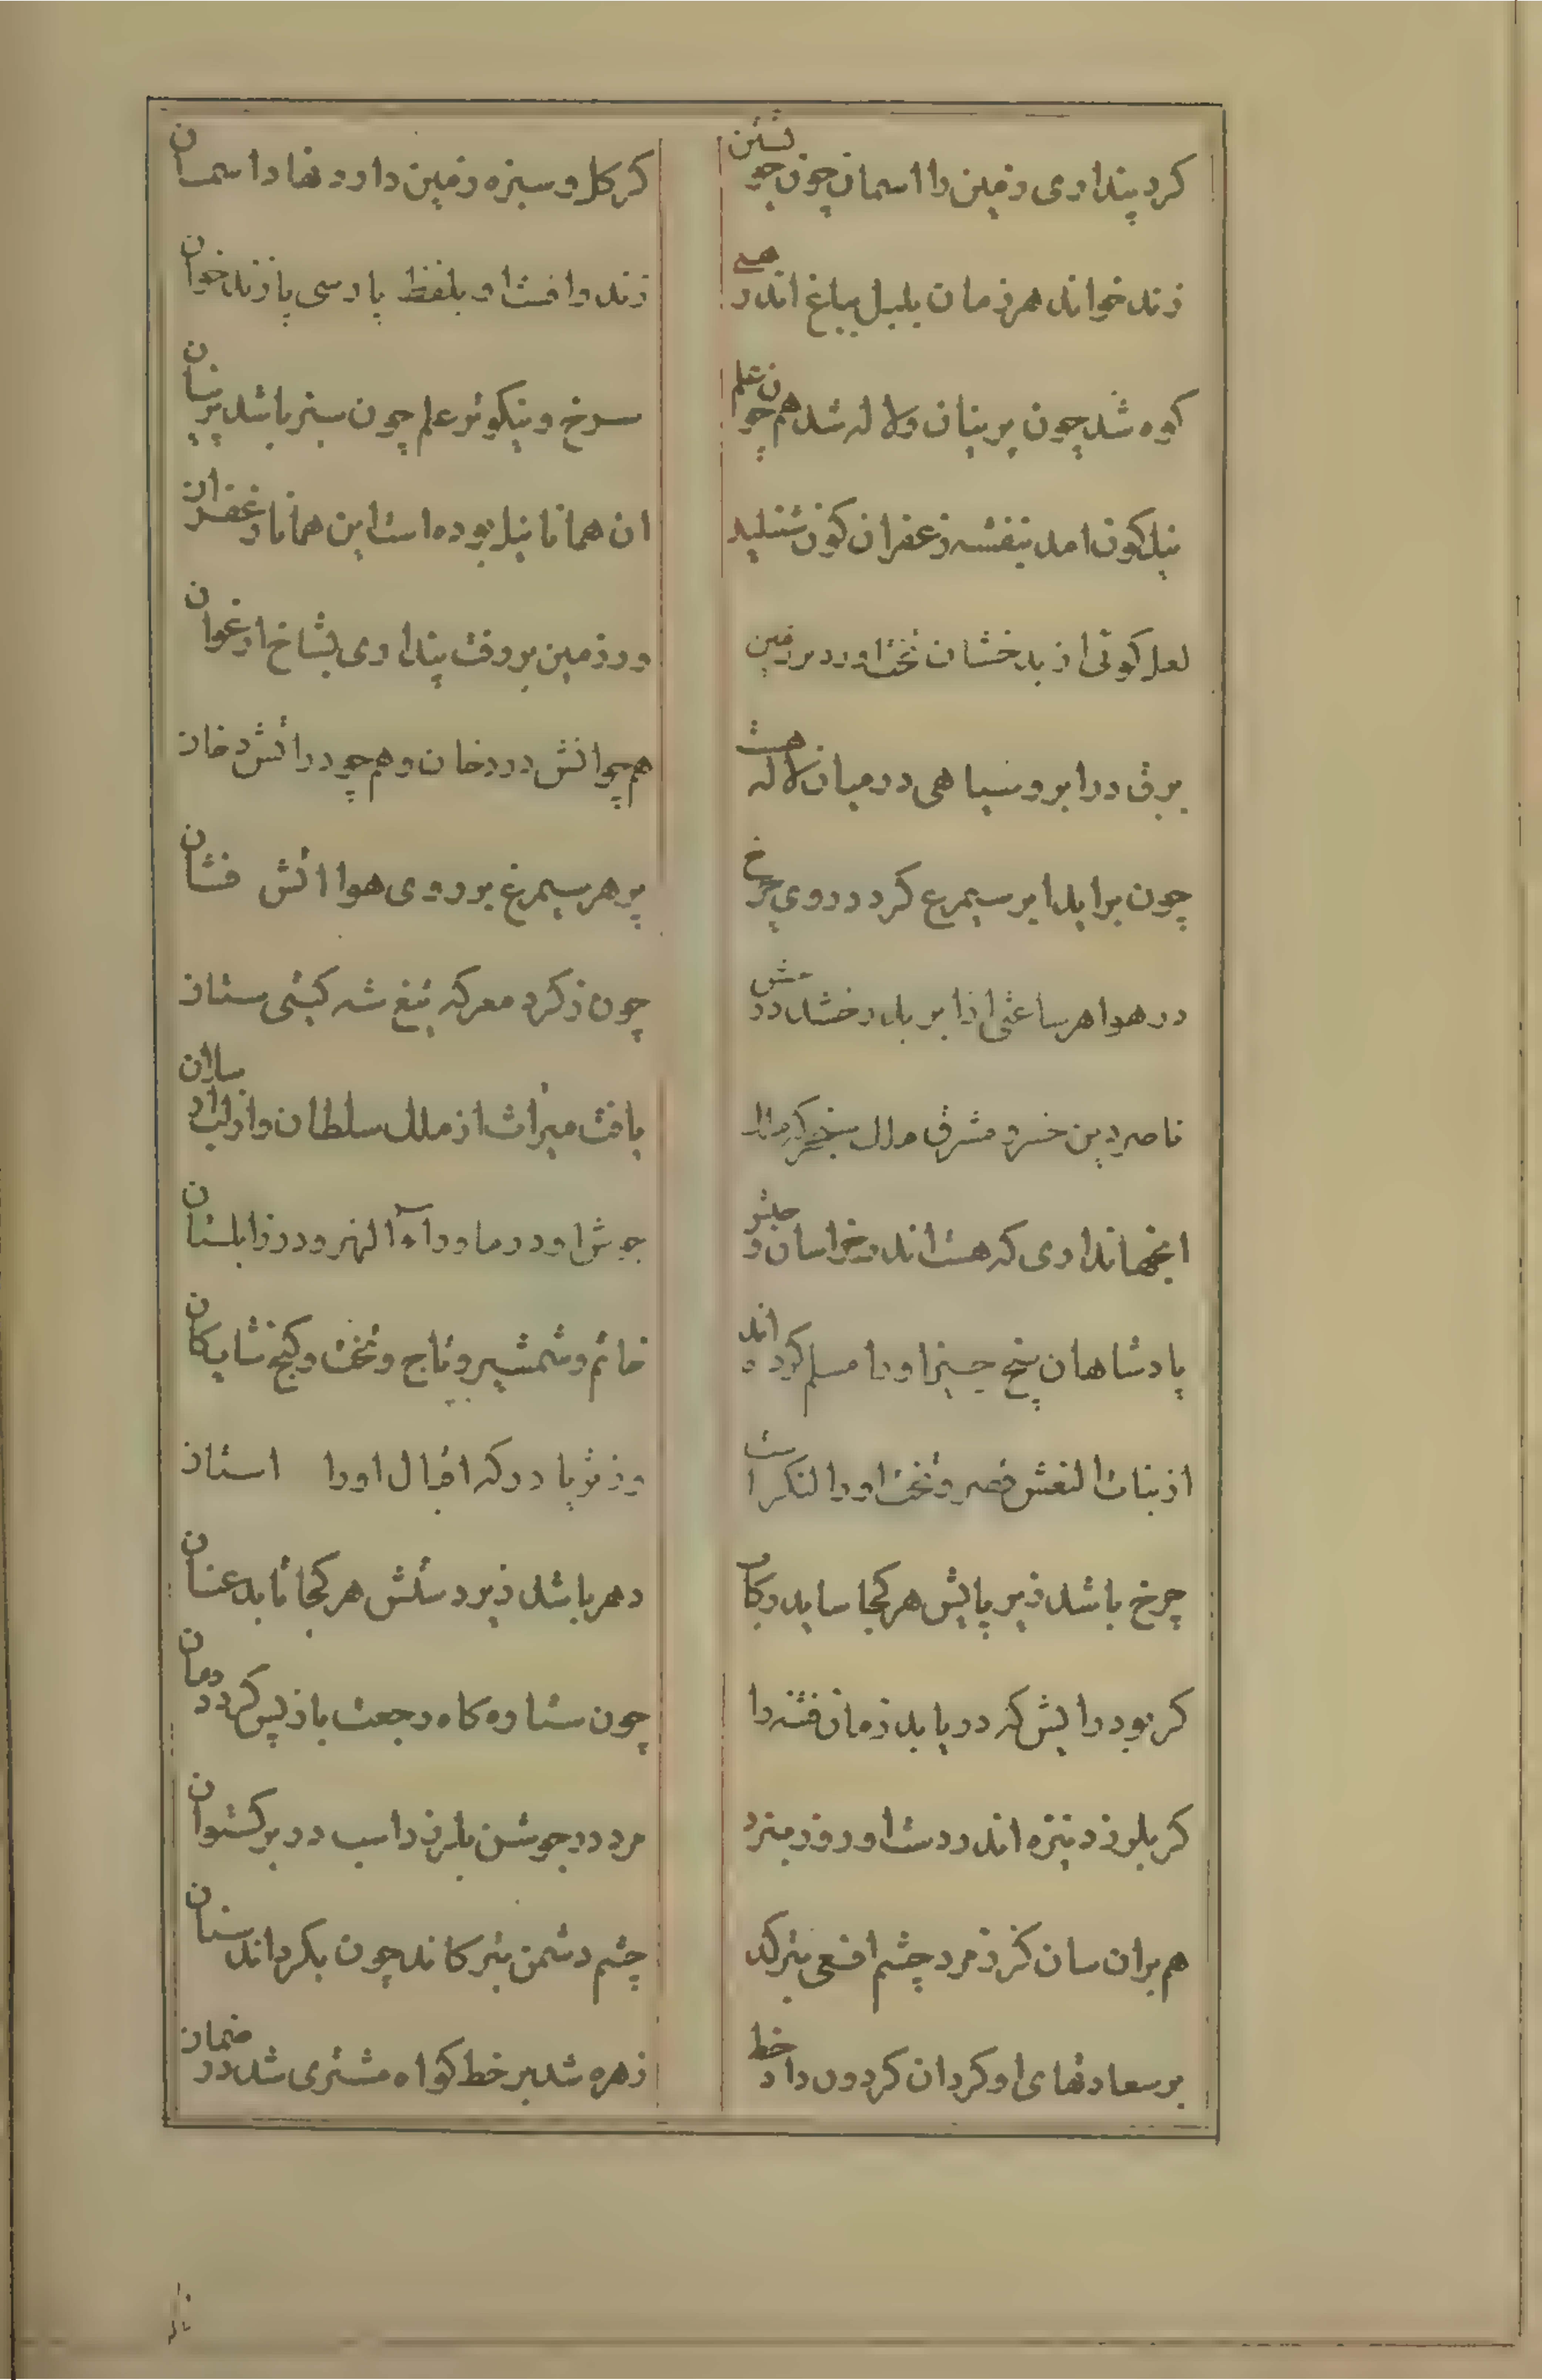 کرد پنداری زمین را اسمان چون جو شتن
کر کل و سبزه زمین دارد نهاد اسمان
زند خواند هر زمان بلبل بباغ اندر همی
زند وافستا و بلفظ پارسی پازند خوان
کوه شد چون پرنیان و لاله شد هم چون علم
سرخ و نیکوتر علم چون سبز باشد پرنیان
نیل کون امد بنفشه زعفران کون شنبلید
ان همانا نیل بوده است این همانا زعفران
لعل کوئی از بدخشان تخت اورد بر زمین
ور زمین بر رفت پنداری بشاخ ارغوان
برق در ابر و سیاهی در میان لاله هست
هم چو اتش در دخان و هم چو در اتش دخان
چون براید ابر سیمرغ کرد در روی چرخ
پر هر سیمرغ بر روی هوا اتش فشان
در هوا هر ساعتی از ابر بدرخشد درخش
چون ز کرد معرکه تیغ شه کیتی ستان
ناصر دین خسرو مشرق ملک سنجر که ملک
یافت میراث از ملک سلطان و از الب ارسلان
انجهانداری که هست اندر خراسان و جیش او
جوش او در ماوراء النهر و در زابلستان
پادشاهان پنج چیز او را مسلم کرده اند
خاتم و شمشیر و تاج و تخت و کنج شایکان
از بنات النعش قصر و تخت او را لنکر است
وز ثریا در که اقبال او را استان
چرخ باشد زیر پایش هر کجا ساید رکاب
دهر باشد زیر دستش هر کجا تابد عنان
کر بود رایش که دریابد زمان فتنه را
چون ستاره کاه رجعت باز پس کردد زمان
کر بلرزد نیزه اندر دست او روز نبرد
مرد در جوشن بلرزد اسب در برکستوان
هم بران سان کز زمرد چشم افعی بترکد
چشم دشمن بترکاند چون بکرداند سنان
بر سعادتهای او کردان کردون داد خط
زهره شد بر خط کواه مشتری شد در ضمان